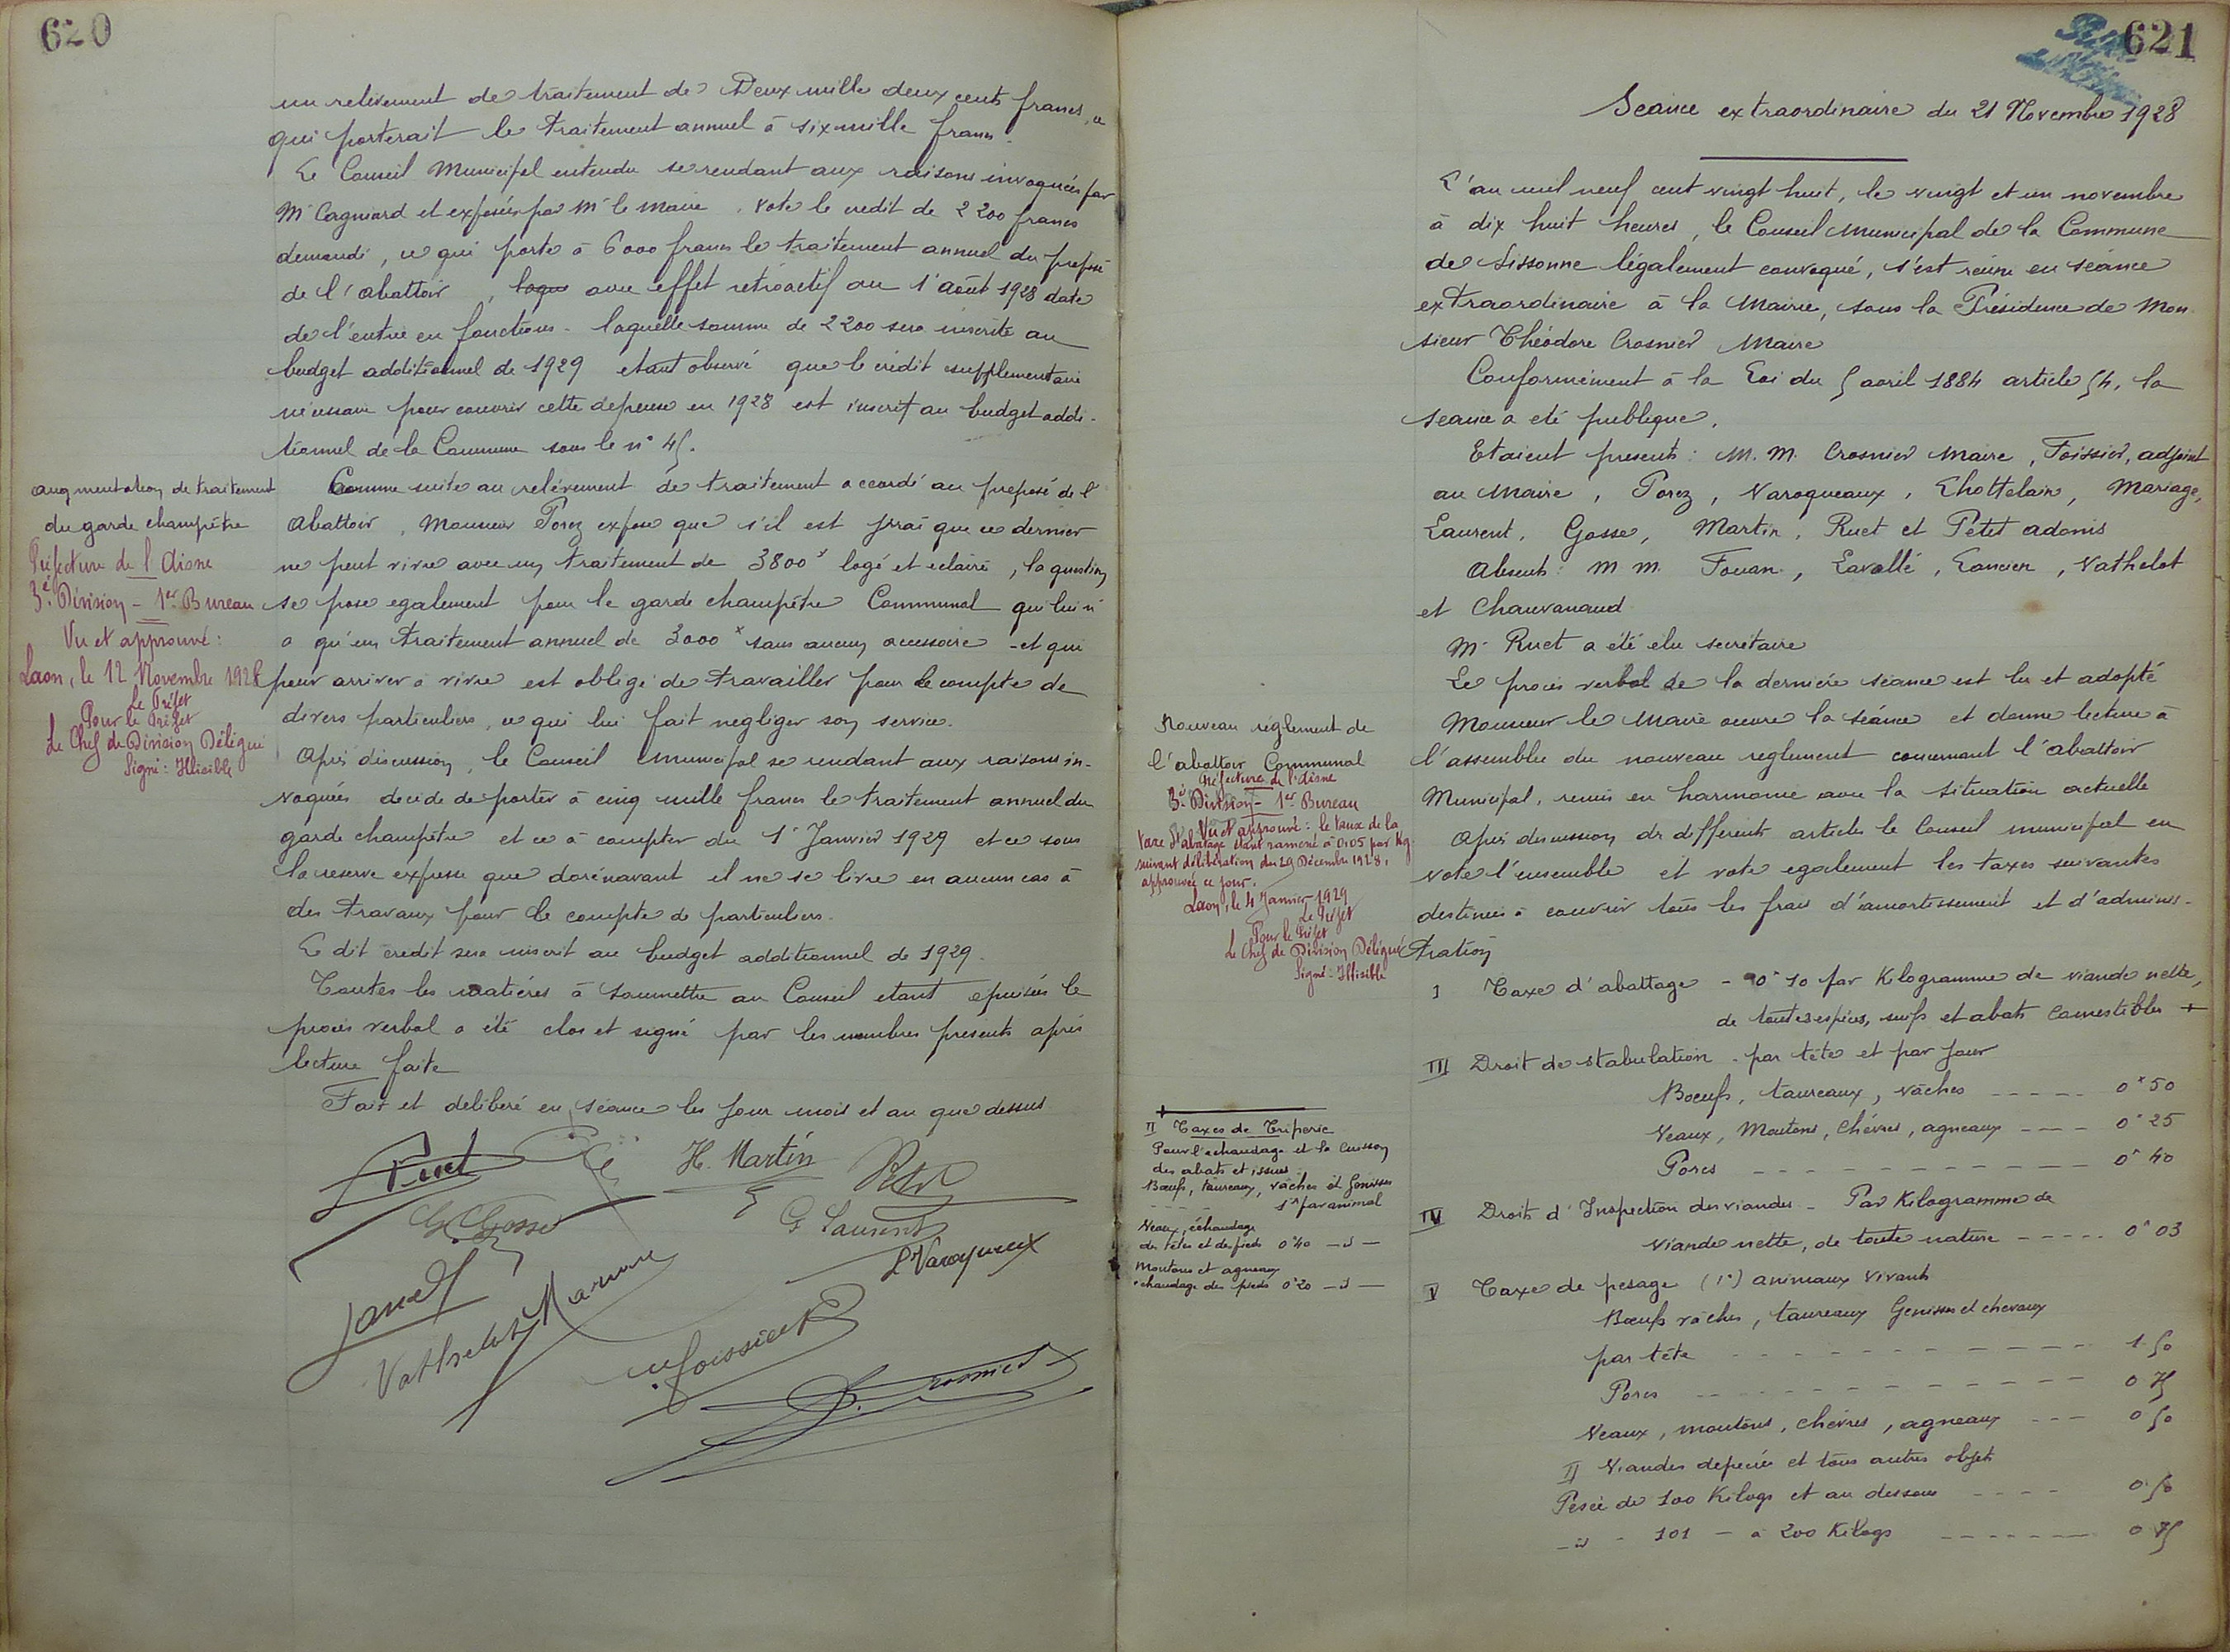 620
un relèvement de traitement de Deux mille deux cents francs, ce
qui porterait le traitement annuel à six mille francs.
Le Conseil Municipal entendu se rendant aux raisons invoquées par
Mr Cagniard et exposées par Mr le Maire, vote le credit de 2200 francs
demandé, ce qui porte à 6000 francs le traitement annuel du préposé
de l'abattoir, avec effet rétroactif au 1er août 1928 date
de l'entrée en fonctions - laquelle somme de 2200 sera inscrite au
budget additionnel de 1929 etant observé que le crédit supplementaire
nécessaire pour couvrir cette depense en 1928 est inscrit au budget addi-
tionnel de la Commune sous le n° 45.
augmentation de traitement
du garde champêtre
Préfecture de l'Aisne
3e Division - 1er Bureau
Vu et approuvé :
Laon, le 12 Novembre 1928
Le Préfet
Pour le Préfet
Le Chef de Division Délégué
Signé : Illisible
Comme suite au relèvement de traitement accordé au preposé de l'
Abattoir, Monsieur Porez expose que s'il est vrai que ce dernier
ne peut vivre avec un traitement de 3800f logé et eclairé, la question
se pose egalement pour le garde champêtre Communal qui lui n'
a qu'un traitement annuel de 3000f sans aucun accessoire - et qui
pour arriver à vivre est obligé de travailler pour le compte de
divers particuliers, ce qui lui fait negliger son service.
Après discussion, le Conseil Municipal se rendant aux raisons in-
voquées decide de porter à cinq mille francs le traitement annuel du
garde champêtre et ce à compter du 1er Janvier 1929 et ce sous
la reserve expresse que dorénavant il ne se livre en aucun cas à
des travaux pour le compte de particuliers.
Le dit credit sera inscrit au budget additionnel de 1929.
Toutes les matières à soumettre au Conseil etant epuisées le
procès verbal a été clos et signé par les membres présents après
lecture faite
Fait et deliberé en séance les jour mois et an que dessus
Ruet
H. Martin
Petit
G. Gosse
G Laurent
L Varoqueaux
Vathelot
Foissier
Crosnier
621
Seance extraordinaire du 21 Novembre 1928
L'an mil neuf cent vingt huit, le vingt et un novembre
à dix huit heures, le Conseil Municipal de la Commune
de Sissonne légalement convoqué, s'est réuni en séance
extraordinaire à la Mairie, sous la Présidence de Mon-
sieur Théodore Crosnier Maire
Conformément à la Loi du 5 avril 1884 article 54, la
seance a eté publique.
Etaient presents : M. M. Crosnier Maire, Foissier, adjoint
au Maire, Porez, Varoqueaux, Lhottelain, Mariage,
Laurent, Gosse, Martin, Ruet et Petit adonis
Absents : M M. Fouan, Lavallé, Lancien, Vathelot
et Chauvanaud
Mr Ruet a été élu secrétaire
Le procès verbal de la dernière séance est lu et adopté
Nouveau réglement de
l'abattoir Communal
Préfecture de l'Aisne
3e Division - 1er Bureau
Vu et approuvé : le taux de la
taxe d'abatage étant ramené à 0.05 par Kg.
suivant délibération du 29 Décembre 1928,
approuvée ce jour.
Laon, le 4 Janvier 1929
Le Préfet
Pour le Préfet
Le Chef de Division Délégué
Signé : Illisible
Monsieur le Maire ouvre la séance et donne lecture à
l'assemblée du nouveau reglement concernant l'abattoir
Municipal, remis en harmonie avec la situation actuelle
Après discussion de differents articles le Conseil municipal en
vote l'ensemble et vote egalement les taxes suivantes
destinées à couvrir tous les frais d'amortissement et d'adminis-
tration
I Taxe d'abattage - 0f 10 par Kilogramme de viande nette,
de toutes espèces, suifs et abats comestibles +
+
II Taxes de Triperie
Pour l'echaudage et la Cuisson
des abats et issues
Bœufs, taureaux, vaches et Genisses
- - - - 1f par animal
Veaux, échaudage
des têtes et des pieds 0f40 - d° -
Moutons et agneaux
echaudage des pieds 0f20 - d° -
III Droit de stabulation - par tête et par jour
Bœufs, taureaux, vaches - - - - - 0f 50
Veaux, Moutons, Chèvres, agneaux - - - - 0f 25
Porcs - - - - - - - - - - - - - 0f 40
IV Droits d'Inspection des viandes - Par Kilogramme de
viande nette, de toute nature - - - - - 0f 03
V Taxe de pesage (1°) animaux vivants
Bœufs vaches, taureaux Genisses et chevaux
par tête - - - - - - - - - - - - 1.50
Porcs - - - - - - - - - - - - 0 75
Veaux, moutons, chèvres, agneaux - - - 0 50
II Viandes depecées et tous autres objets
Pesée de 100 Kilogs et au dessous - - - - 0.50
- d° - 101 - à 200 Kilogs - - - - - - - 0 75